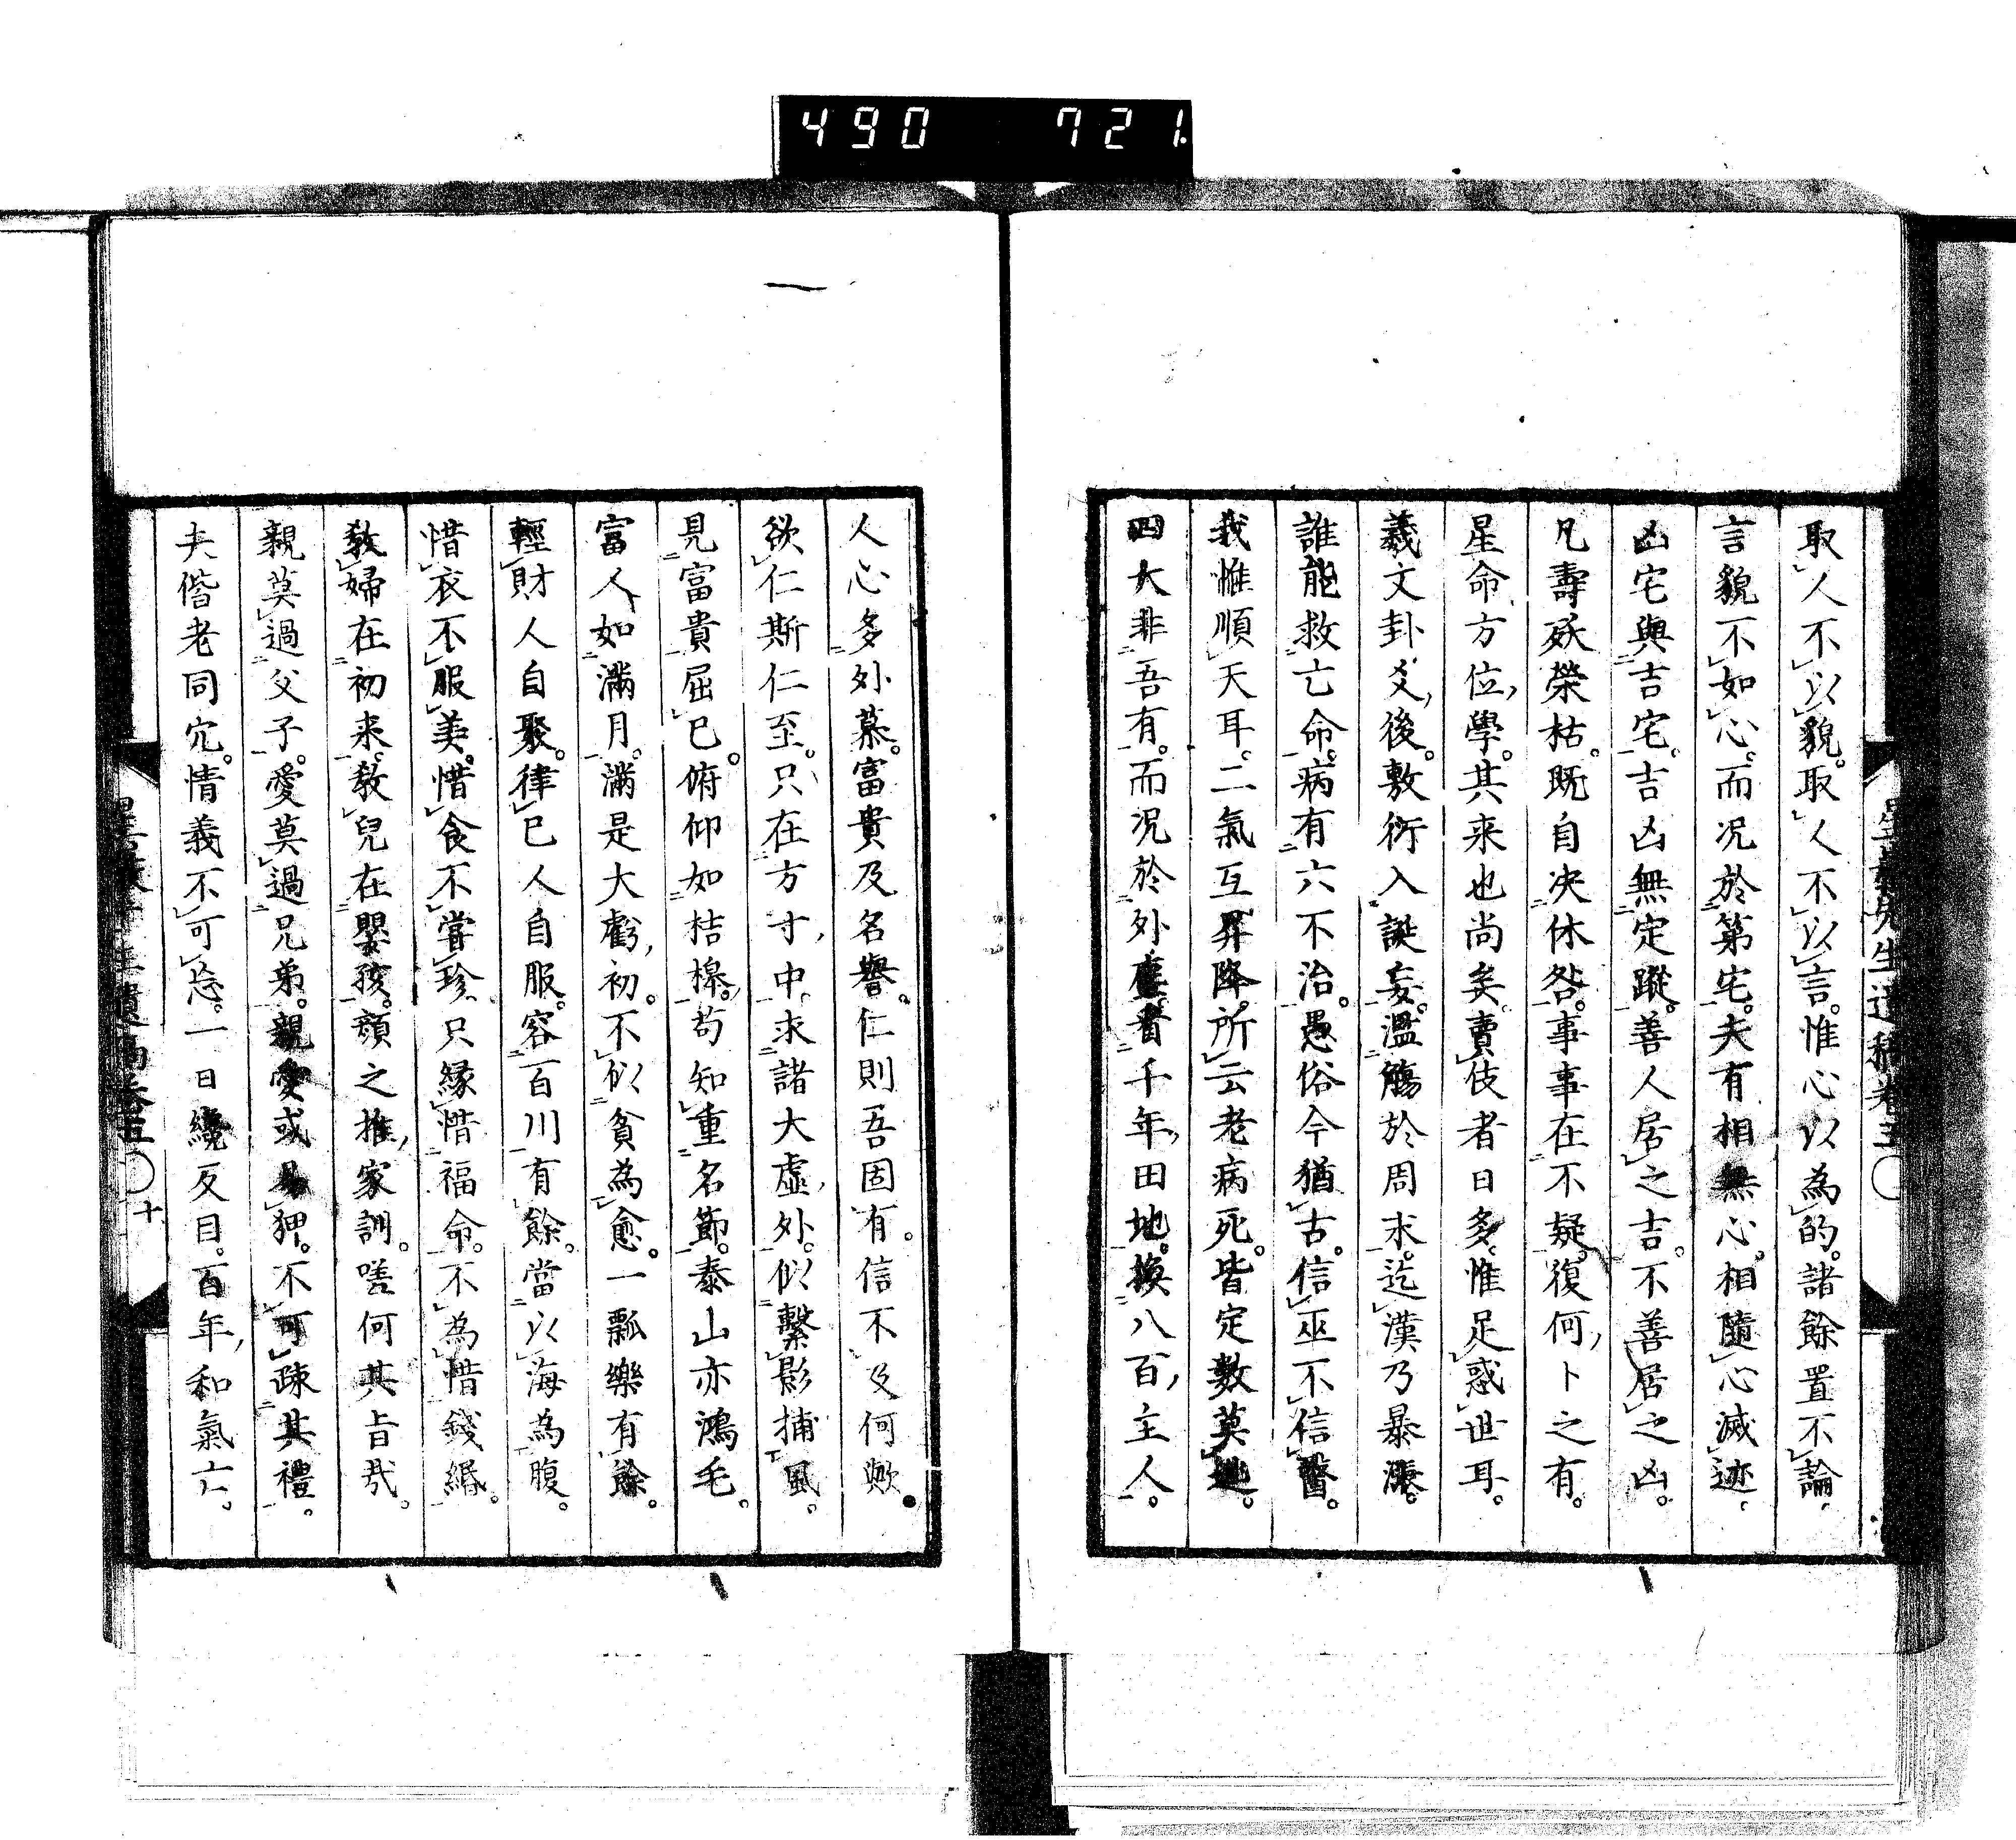 490 721
取人不以貌。取人不以言。惟心以為的。諸餘置不論。
言貌不如心。而况於第宅。夫有相無心。相隨心滅迹。
凶宅與吉宅。吉凶無定蹤。善人居之吉。不善居之凶。
凡壽殀榮枯。既自决休咎。事事在不疑。復何卜之有。
星命方位學。其来也尚矣。賣伎者日多。惟足惑世耳。
羲文卦爻後。敷衍入誕妄。濫觴於周末。迄漢乃暴漲。
誰能救亡命。病有六不治。愚俗今猶古。信巫不信醫。
我惟順天耳。二氣互昇降。所云老病死。皆定數莫逃。
四大非吾有。而况於外塵。看千年田地。換八百主人。
人心多外慕。富貴及名譽。仁則吾固有。信不及何歟。
欲仁斯仁至。只在方寸中。求諸大虛外。似繫影捕風。
見富貴屈己。俯仰如桔槔。苟知重名節。泰山亦鴻毛。
富人如滿月。滿是大虧初。不似貧為愈。一瓢樂有餘。
輕財人自聚。律己人自服。容百川有餘。當以海為腹。
惜衣不服美。惜食不嘗珍。只緣惜福命。不為惜錢緡。
教婦在初来。教兒在嬰孩。顏之推家訓。嗟何其旨㢤。
親莫過父子。愛莫過兄弟。親愛或易狎。不可疎其禮。
夫偕老同穴。情義不可忘。一日纔反目。百年和氣亡。
先生遺稿卷五〇十